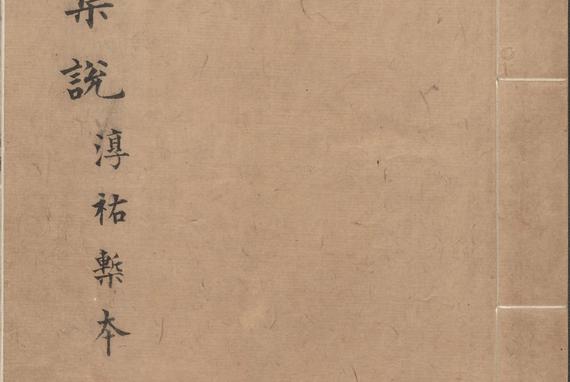 集說
淳祐槧本